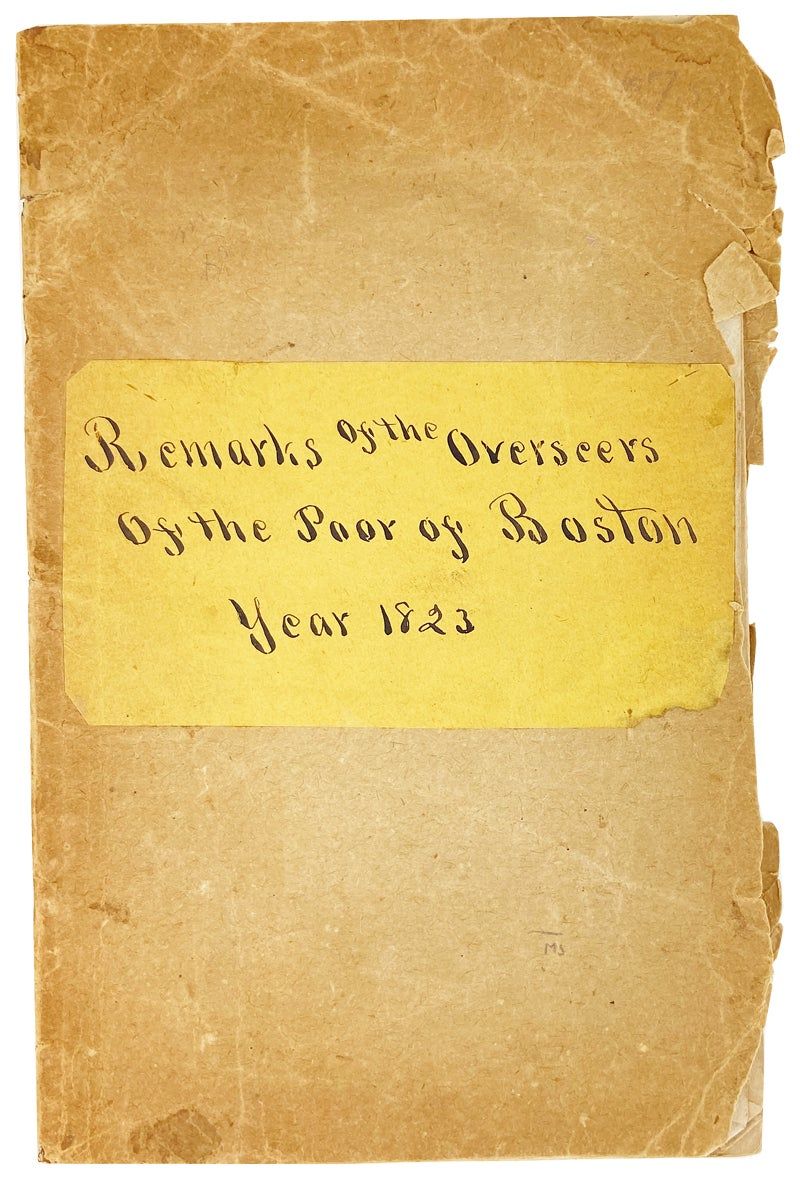 Remarks of the Overseers
Of the Poor of Boston
Year 1823
MS